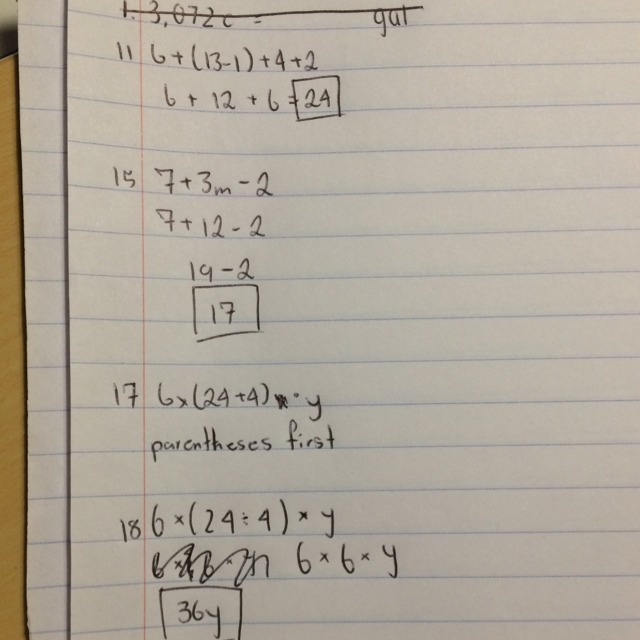 1. 3,072c =
gal
11 6+(13-1)+4+2
6 + 12 + 6 = 24
15 7+3m-2
7+12-2
19-2
17
17 6×(24÷4) · y
parentheses first
18 6×(24÷4)×y
6×6×y
36y